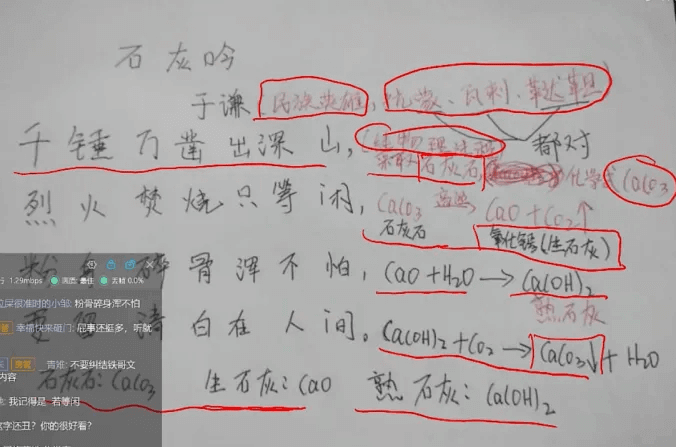 石灰吟
于谦(民族英雄,抗蒙、瓦剌、鞑靼
千锤万凿出深山,(纯物理过程 都对
采取石灰石, 化学式CaCO3
烈火焚烧只等闲, CaCO3 高温 CaO+CO2↑
石灰石 氧化钙(生石灰)
粉 碎骨浑不怕, CaO+H2O→Ca(OH)2
熟石灰
要留清白在人间。 Ca(OH)2+CO2→CaCO3↓+H2O
石灰石:CaCO3 生石灰:CaO 熟石灰:Ca(OH)2
1.29mbps 画质:最佳 丢帧0.0%
很准时的小邹:粉骨碎身浑不怕
幸福快来砸门:屁事还挺多,听就
房管 青雉:不要纠结铁哥文
内容
我记得是 若等闲
字还丑?你的很好看?